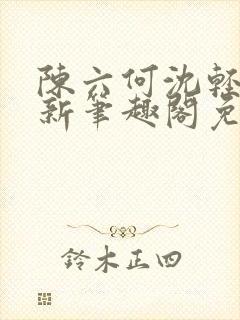 陳六何沈輕
新筆趣閣免
鈴木正四